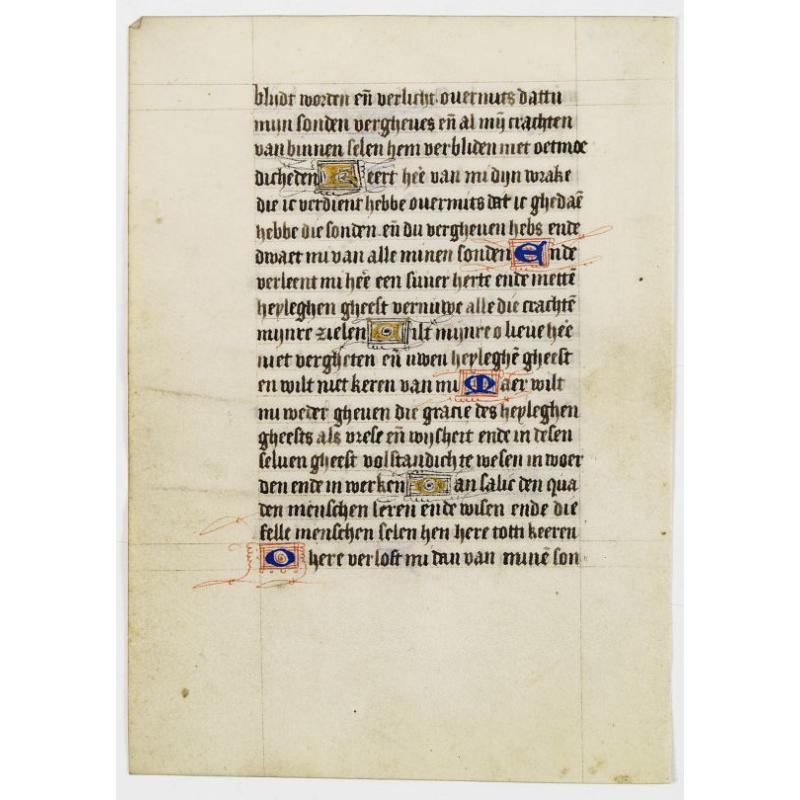 blijdt worden en̄ verlicht. overmits dattu
mijn sonden vergheves en̄ al mij̄ crachten
van binnen selen hem verbliden met oetmoe
dicheden Keert hēe van mi dijn wrake
die ic verdient hebbe overmits dat ic ghedaē
hebbe die sonden. en̄ du vergheven hebs ende
dwaet mi van alle minen sonden Ende
verleent mi hēe een suver herte ende mettē
heyleghen gheest vernuwe alle die crachtē
mijnre zielen Wilt mijnre o lieve hēe
niet vergheten en̄ uwen heyleghē gheest
en wilt niet keren van mi Maer wilt
mi weder gheven die gracie des heyleghen
gheests als vrese en̄ wijsheit ende in desen
selven gheest volstandich te wesen in woer
den ende in werken Dan salic den qua
den menschen leren ende wisen ende die
felle menschen selen hen here tottī keeren
O here verlost mi dan van minē son